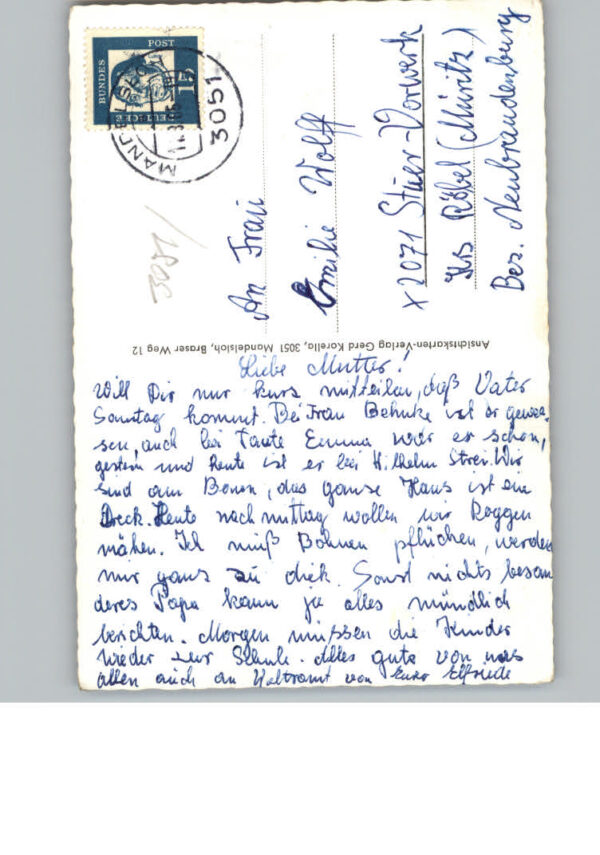 BUNDES
POST
DEUTSCHE
15
MANDELSLOH
3051
3051/
An Frau
Emilie Wolff
X 2071 Stuer-Vorwerk
Krs Röbel (Müritz)
Bez. Neubrandenburg
Ansichtskarten-Verlag Gerd Korella, 3051 Mandelsloh, Braser Weg 12
Liebe Mutter!
Will Dir nur kurz mitteilen, daß Vater
Sonntag kommt. Bei Frau Behnke ist er gewe-
sen, auch bei Tante Emma war er schon,
gestern und heute ist er bei Wilhelm Strei. Wir
sind am Bauen, das ganze Haus ist ein
Dreck. Heute nachmittag wollen wir Roggen
mähen. Ich muß Bohnen pflücken, werden
mir ganz zu dick. Sonst nichts beson
deres Papa kann ja alles mündlich
berichten. Morgen müssen die Kinder
wieder zur Schule. Alles gute von uns
allen auch an Waltraut von Eurer Elfriede